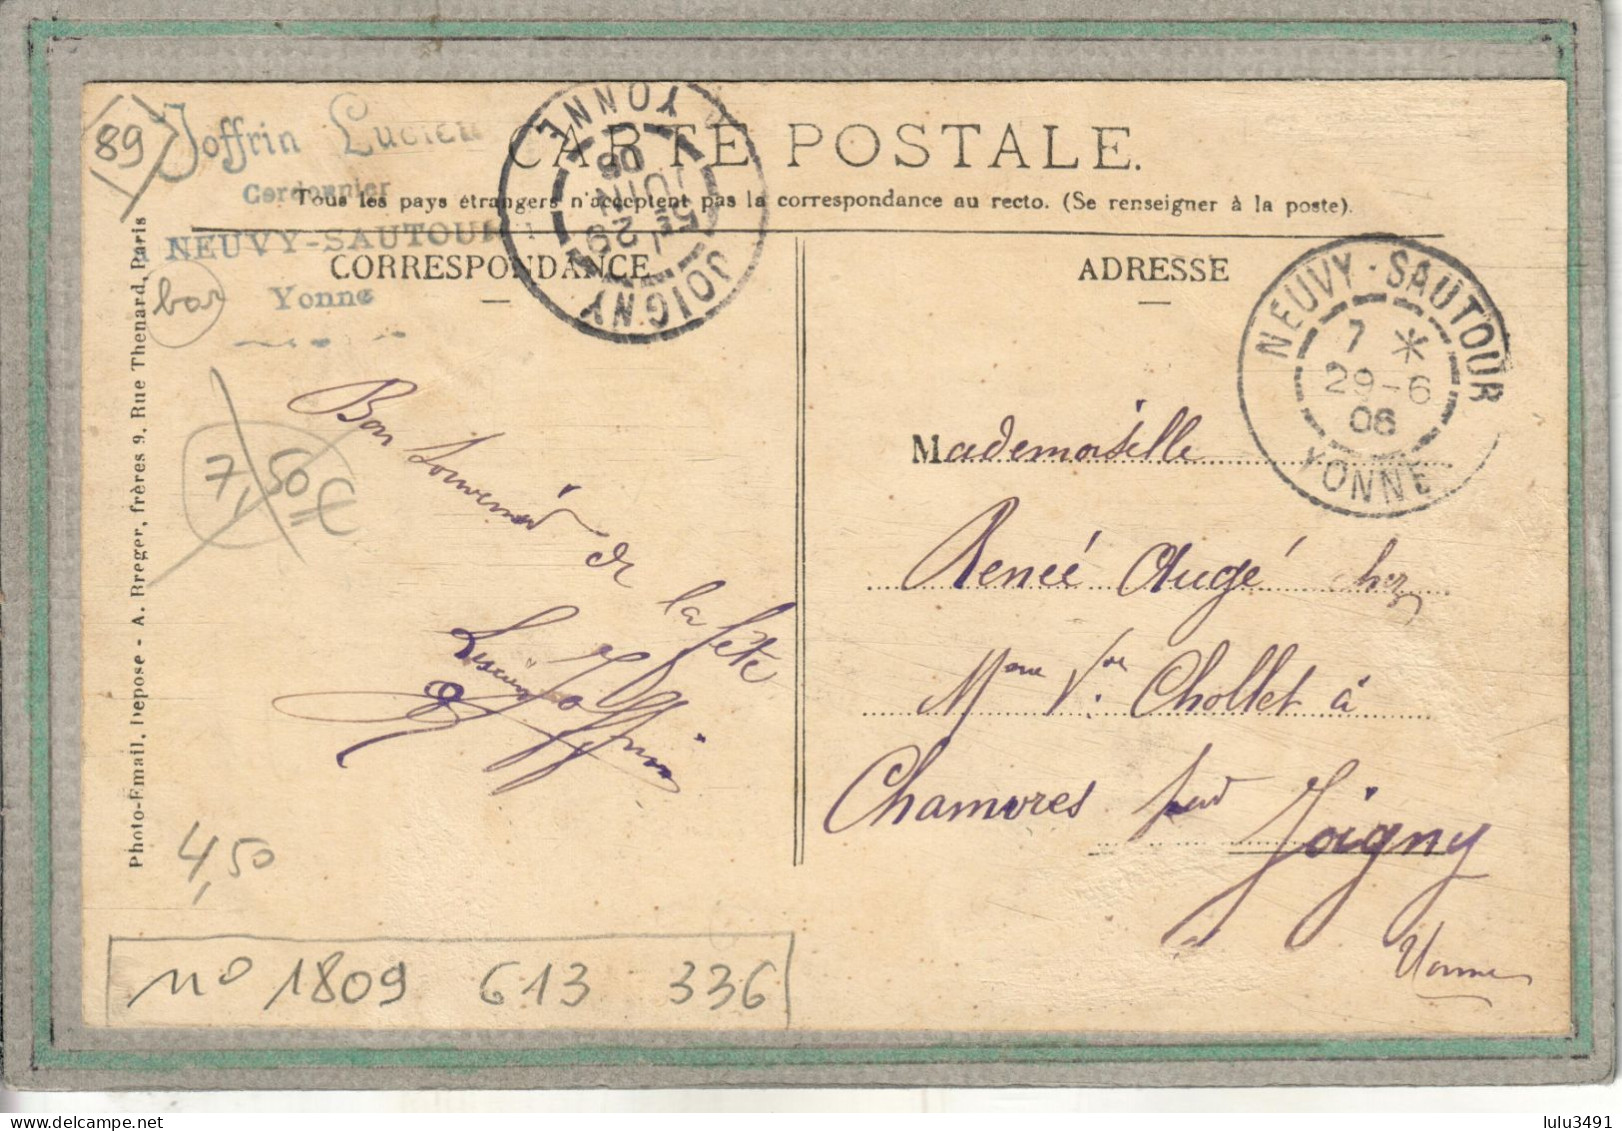 89
Joffrin Lucien
Cordonnier
NEUVY-SAUTOUR
Yonne
bar
CARTE POSTALE.
Tous les pays étrangers n'acceptent pas la correspondance au recto. (Se renseigner à la poste).
CORRESPONDANCE
ADRESSE
JOIGNY
29
JUIN
06
YONNE
NEUVY-SAUTOUR
7 *
29-6
06
YONNE
7,50 F
Bon souvenir de la fête
Lucien Joffrin
Mademoiselle
Renée Augé chez
Mme Vve Chollet à
Chamvres par
Joigny
Yonne
Photo-Email, Depose - A. Breger, frères 9, Rue Thenard, Paris
4,50
no 1809 613 336
lulu3491